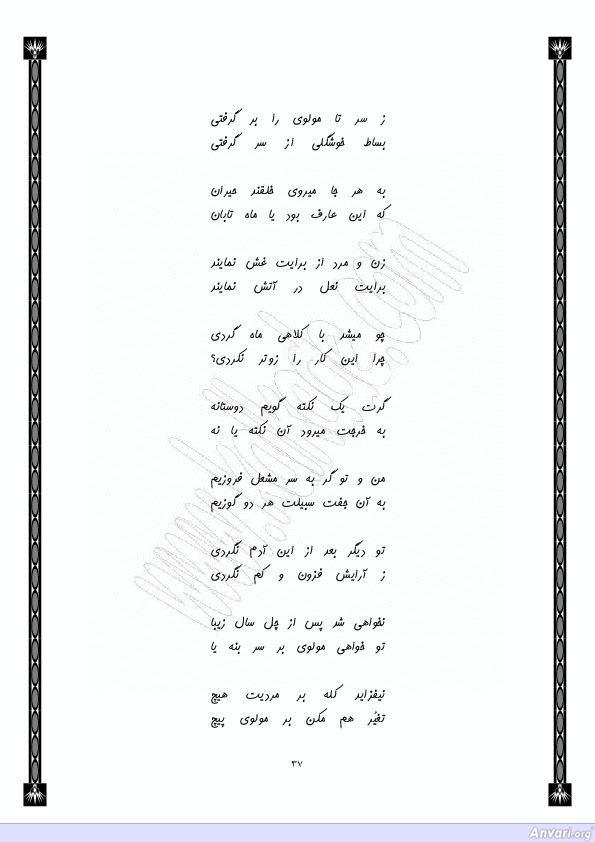 ز سر تا مولوی را بر گرفتی
بساط خوشگلی از سر گرفتی
به هر جا میروی خلقند حیران
که این عارف بود یا ماه تابان
زن و مرد از برایت غش نمایند
برایت نعل در آتش نمایند
چو میشد با کلاهی ماه گردی
چرا این کار را زوتر نکردی؟
گرت یک نکته گویم دوستانه
به خرجت میرود آن نکته یا نه
من و تو گر به سر مشعل فروزیم
به آن جفت سبیلت هر دو گوزیم
تو دیگر بعد از این آدم نگردی
ز آرایش فزون و کم نگردی
نخواهی شد پس از چل سال زیبا
تو خواهی مولوی بر سر بنه یا
نیفزاید کله بر مردیت هیچ
تغیُر هم مکن بر مولوی پیچ
۳۷
www.ketabnak.com
Anvari.org